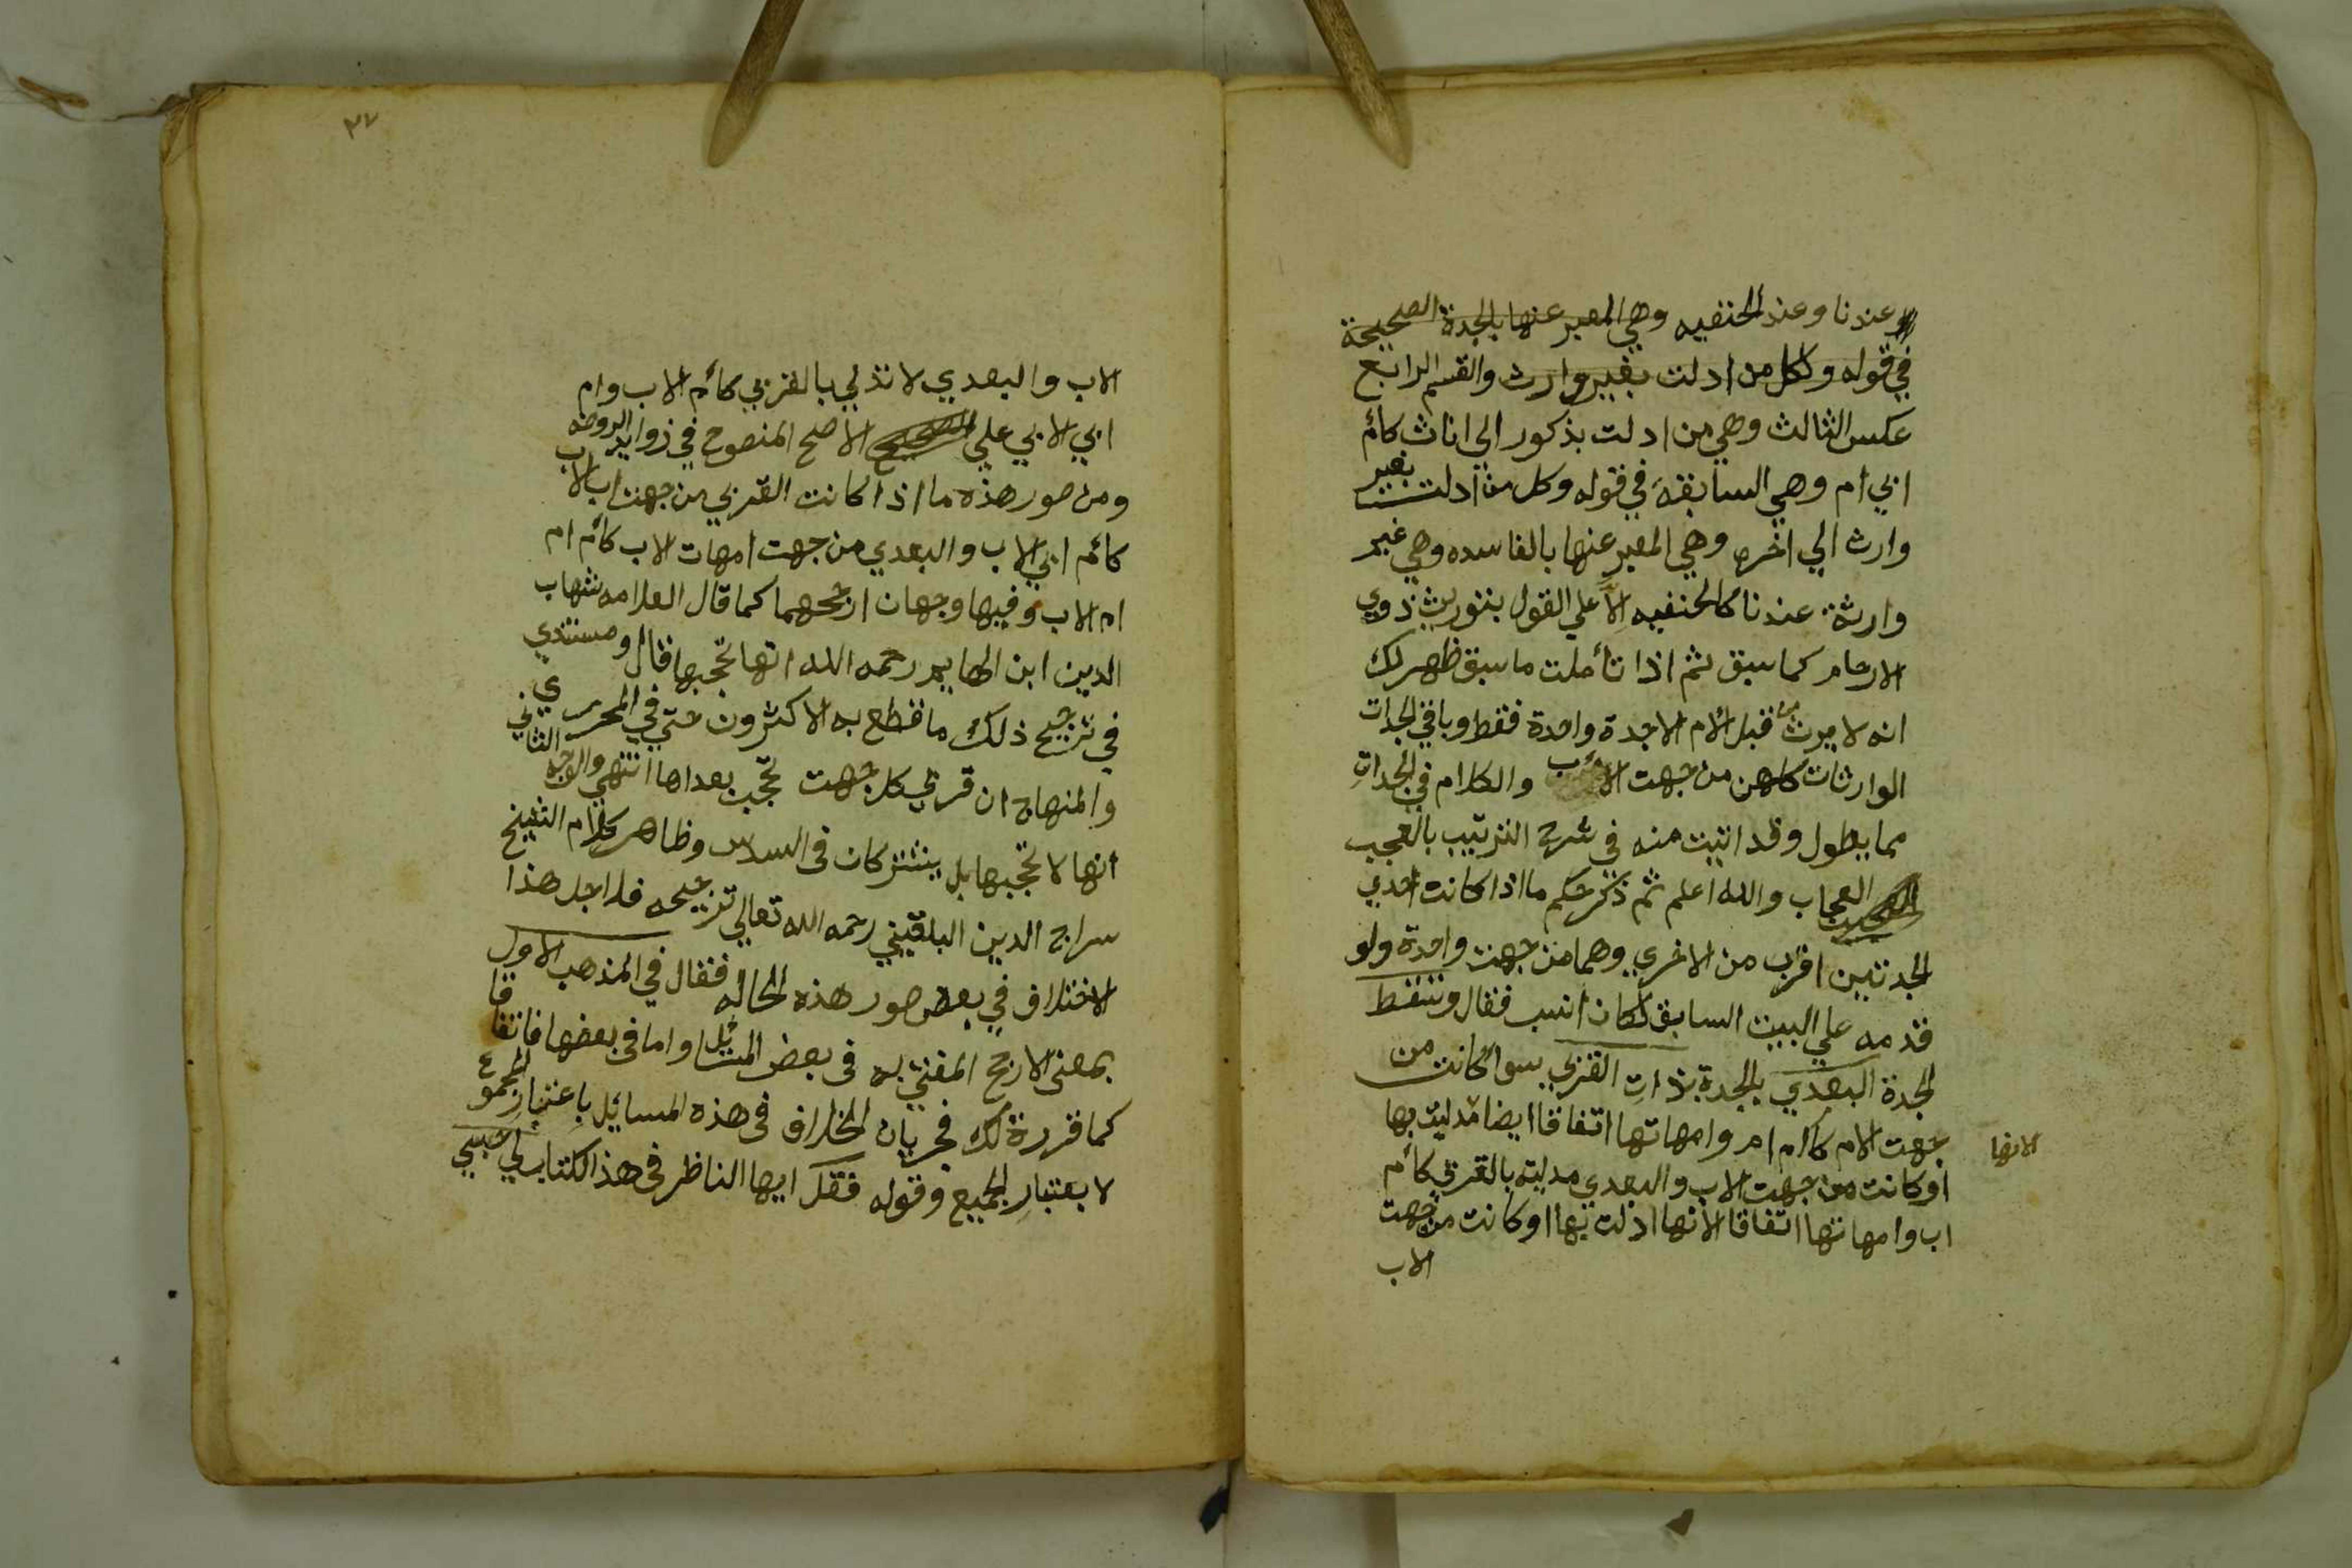 عندنا وعند الحنفيه وهي المعبر عنها بالجدة الصحيحة
في قوله وكل من ادلت بغير وارث والقسم الرابع
عكس الثالث وهي من ادلت بذكور الي اناث كأم
ابي ام وهي السابقة في قوله وكل من ادلت بغير
وارث الي اخره وهي المعبر عنها بالفاسده وهي غير
وارثة عندنا كالحنفيه الا علي القول بتوريث ذوي
الارحام كما سبق ثم اذا تأملت ما سبق ظهر لك
انه لا يرث من قبل الأم الا جدة واحدة فقط وباقي الجدات
الوارثات كلهن من جهت الأب والكلام في الجدات
مما يطول وقد اتيت منه في شرح الترتيب بالعجب
العجاب والله اعلم ثم ذكر حكم ما اذا كانت احدي
الجدتين اقرب من الاخري وهما من جهت واحدة ولو
قدمه علي البيت السابق لكان انسب فقال وتسقط
الجدة البعدي بالجدة بذات القربي سوأ كانت من
جهت الام كأم ام وامهاتها اتفاقا ايضا مدليت بها
لانها
او كانت من جهت الاب والبعدي مدليه بالقربي كأم
اب وامهاتها اتفاقا لانها ادلت بها او كانت من جهت
الاب
٣٧
الاب والبعدي لا تدلي بالقربي كأم الاب وام
ابي الابي علي الاصح المنصوح في زوايد الروضه
ومن صور هذه ما اذا كانت القربي من جهت اب الاب
كأم ابي الاب والبعدي من جهت امهات الاب كأم ام
ام الاب وفيها وجهان ارجحهما كما قال العلامه شهاب
الدين ابن الهايم رحمه الله انها تحجبها قال ومستندي
في ترجيح ذلك ما قطع به الاكثرون حتي في المحرر
والمنهاج ان قربي كل جهت تحجب بعداها انتهي والوجه الثاني
أنها لا تحجبها بل يشتركان في السدس وظاهر كلام الشيخ
سراج الدين البلقيني رحمه الله تعالي ترجيحه فلاجل هذا
الاختلاف في بعض صور هذه الحاله فقال في المذهب الاول
بمعني الارجح المفتي به في بعض المسائل واما في بعضها فاتفاقا
كما قررة لك فجريان الخلاف في هذه المسائل باعتبار المجموع
لا بعتبار الجميع وقوله فقل ايها الناظر في هذا الكتاب لي حسبي